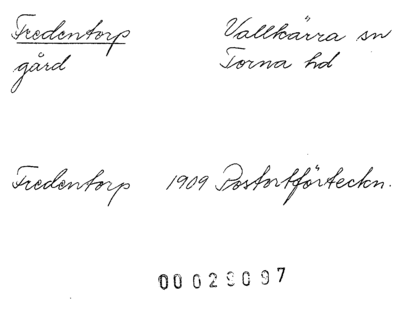 Fredentorp Vallkärra sn
gård Torna hd
Fredentorp 1909 Postortförteckn.
00028097